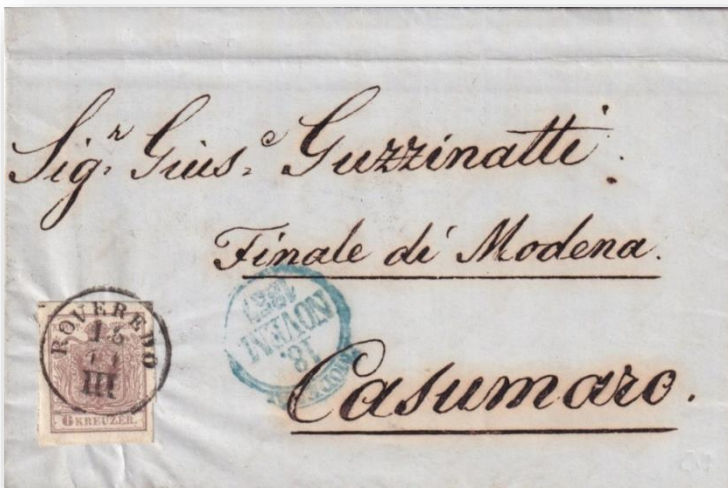 Sigr. Giuse. Guzzinatti.
Finale di Modena.
Casumaro.
ROVEREDO
III
6 KREUZER.
18.
NOVEM